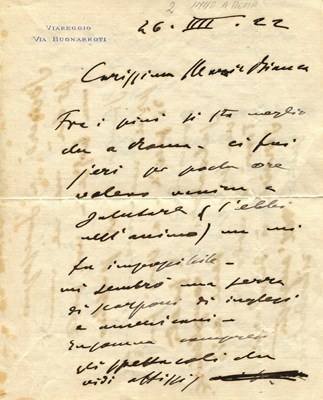 VIAREGGIO
VIA BUONARROTI
26. IIII. 22
Carissima Maria Bianca
Fra i pini si sta meglio
che a Roma - ci fui
jeri per poche ore
volevo venire a
salutarla (l'ebbi
nell'animo) ma mi
fu impossibile -
mi sembrò una serra
di scorpioni di inglesi
e americani -
Insomma
gli spettacoli che
vidi affissi